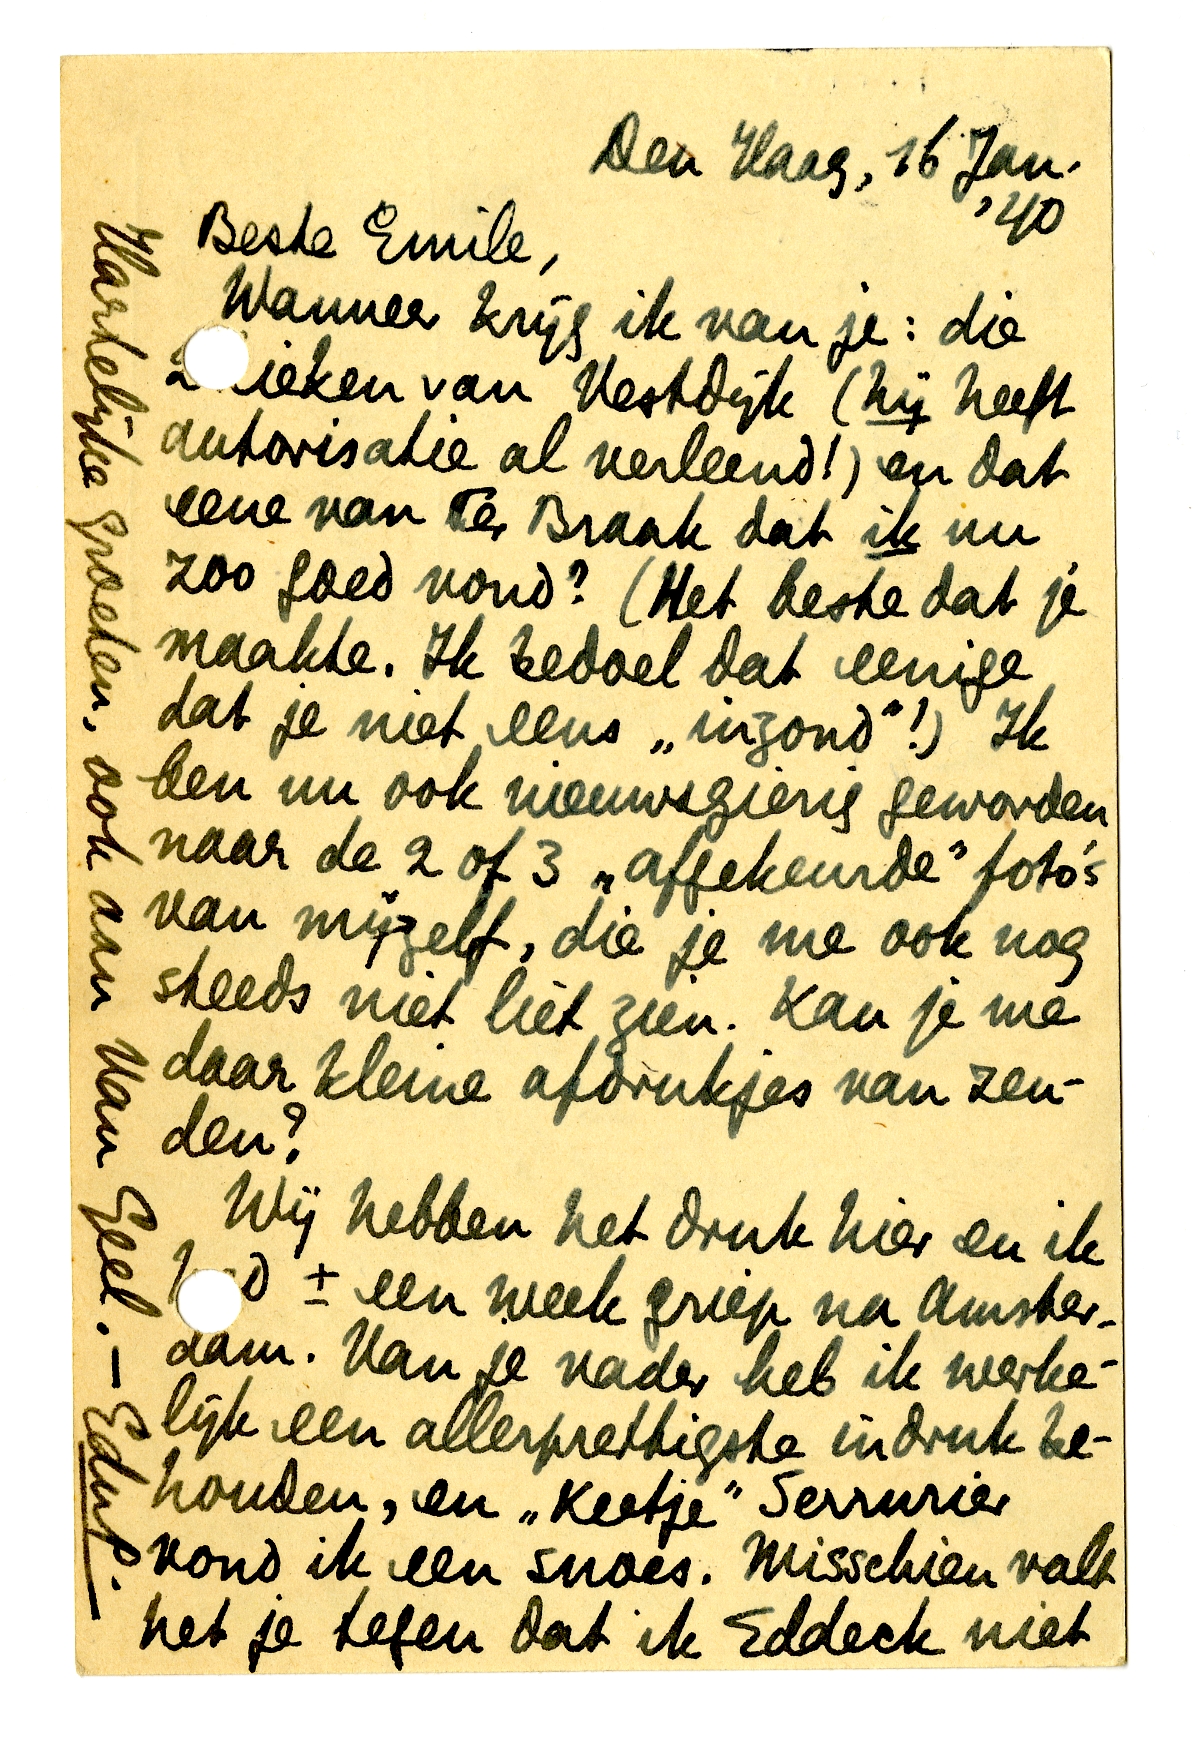 Den Haag, 16 Jan.
'40
Beste Emile,
Wanneer krijg ik van je: die
van Vestdijk (hij heeft
autorisatie al verleend!) en dat
eene van Ter Braak dat ik nu
zoo goed vond? (Het beste dat je
maakte. Ik bedoel dat eenige
dat je niet eens „inzond”!) Ik
ben nu ook nieuwsgierig geworden
naar de 2 of 3 „afgekeurde” foto's
van mijzelf, die je me ook nog
steeds niet liet zien. Kan je me
daar kleine afdrukjes van zen-
den?
Wij hebben het druk hier en ik
± een week griep na Amster-
dam. Van je vader heb ik werke-
lijk een allerprettigste indruk be-
houden, en „Keetje” Serrurier
vond ik een snoes. Misschien valt
het je tegen dat ik Eddeck niet
Hartelijke groeten, ook aan Van Geel. — EduP.